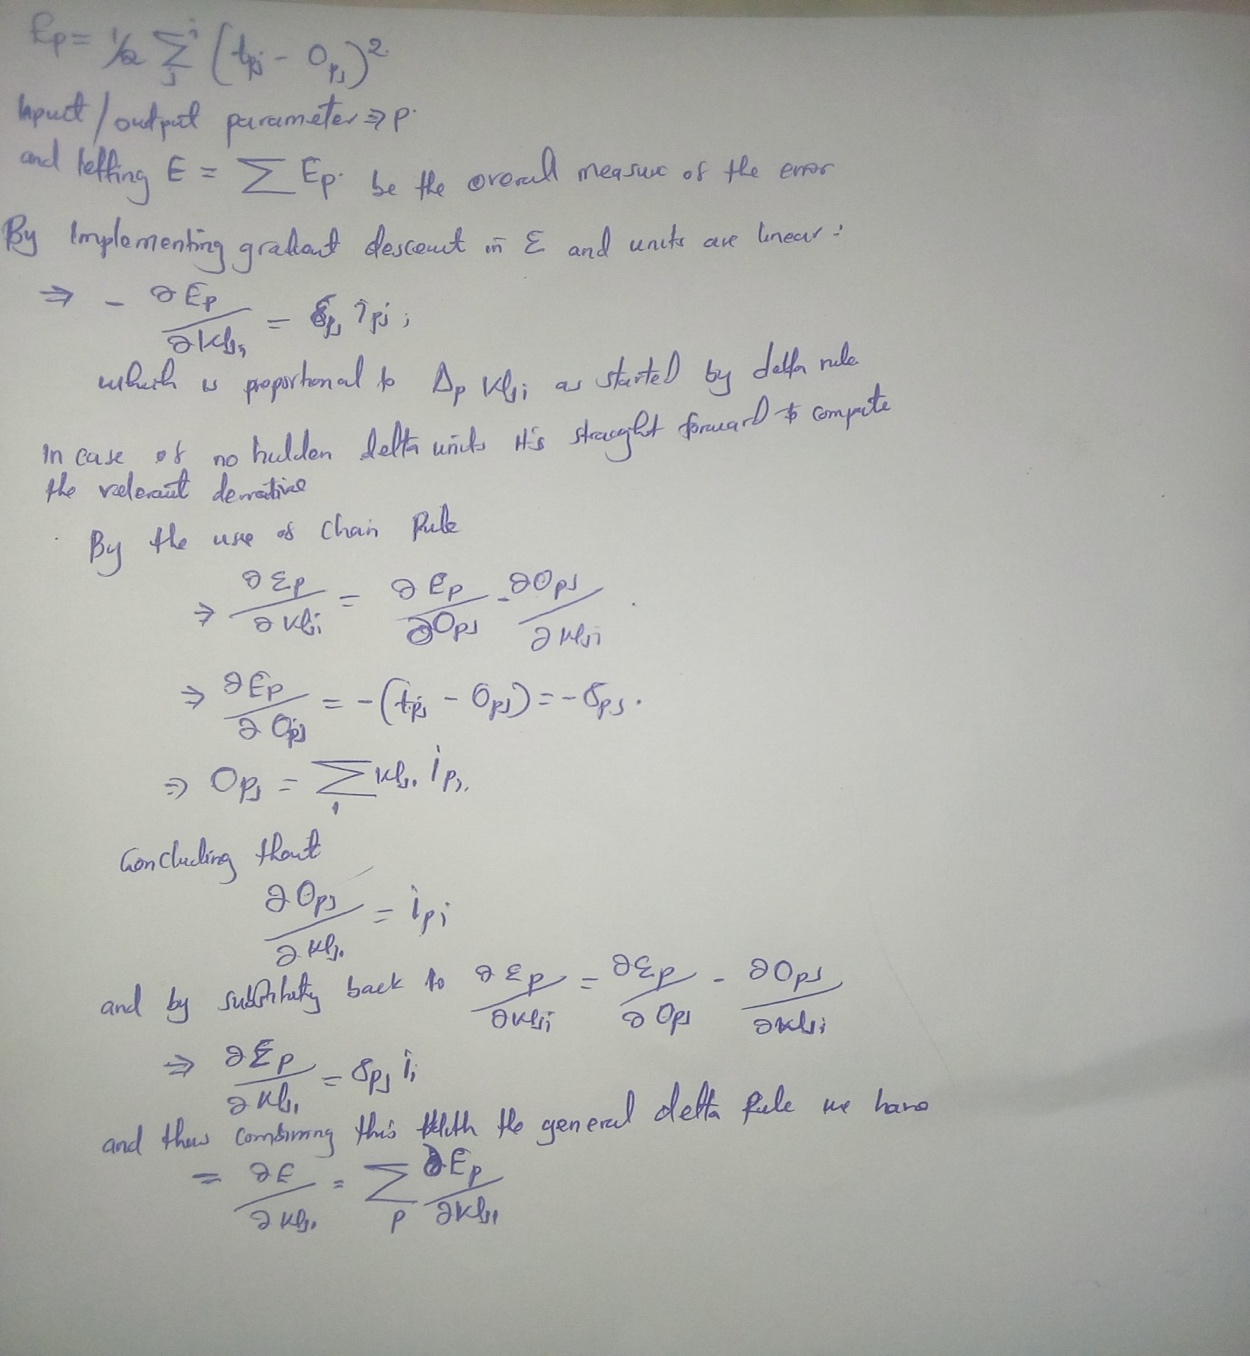 Ep = 1/2 Σj (tpj - Opj)²
Input/output parameter ⇒ p.
and letting E = Σ Ep. be the overall measure of the error
By Implementing gradient descent in E and units are linear :
⇒ - ∂Ep/∂Wji = δpj ipi ;
which is proportional to Δp Wji as started by delta rule
In case of no hidden delta units it's straight forward to compute
the relevant derivative
By the use of Chain Rule
⇒ ∂Ep/∂Wji = ∂Ep/∂Opj . ∂Opj/∂Wji
⇒ ∂Ep/∂Opj = -(tpj - Opj) = -δpj.
⇒ Opj = Σi Wji ipi.
Concluding that
∂Opj/∂Wji = ipi
and by substituting back to ∂Ep/∂Wji = ∂Ep/∂Opj . ∂Opj/∂Wji
⇒ ∂Ep/∂Wji = δpj ii
and thus combining this with the general delta Rule we have
= ∂E/∂Wji = Σp ∂Ep/∂Wji